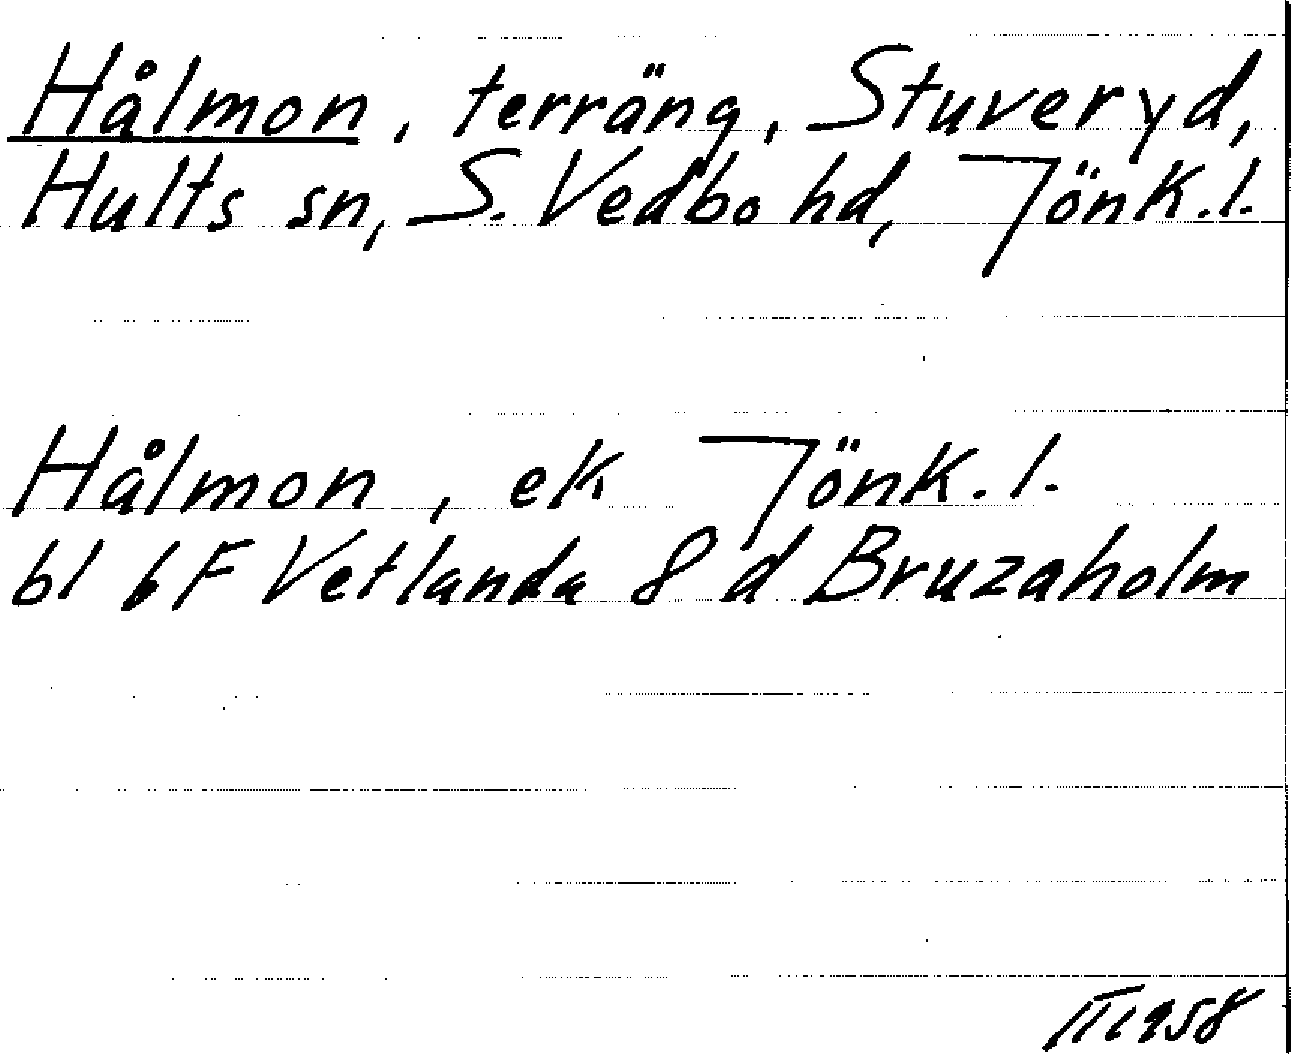 Hålmon, terräng, Stuveryd,
Hults sn, S. Vedbo hd, Jönk.l.
Hålmon, ek Jönk.l.
bl 6F Vetlanda 8 d Bruzaholm